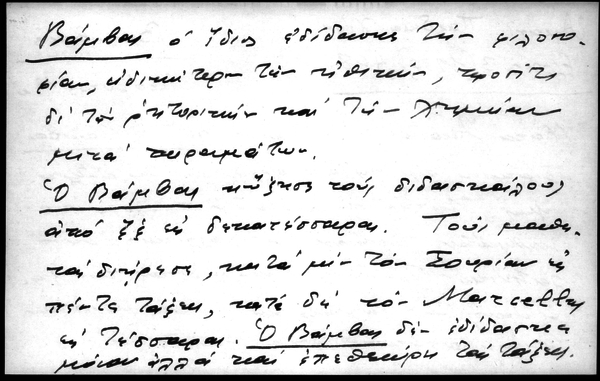 Βάμβας ὁ ἴδιος ἐδίδασκε τήν φιλοσο-
φίαν, εἰδικώτερον τήν ἠθικήν, προσέτι
δέ τήν ρητορικήν καί τήν Χημείαν
μετά πειραμάτων.
Ὁ Βάμβας ηὔξησε τούς διδασκάλους
ἀπό ἕξ εἰς δεκατέσσαρας. Τούς μαθη-
τάς διῄρεσε, κατά μέν τόν Σουρίαν εἰς
πέντε τάξεις, κατά δέ τόν Marcellus
εἰς τέσσαρας. Ὁ Βάμβας δέν ἐδίδασκε
μόνον ἀλλά καί ἐπεθεώρει τάς τάξεις.